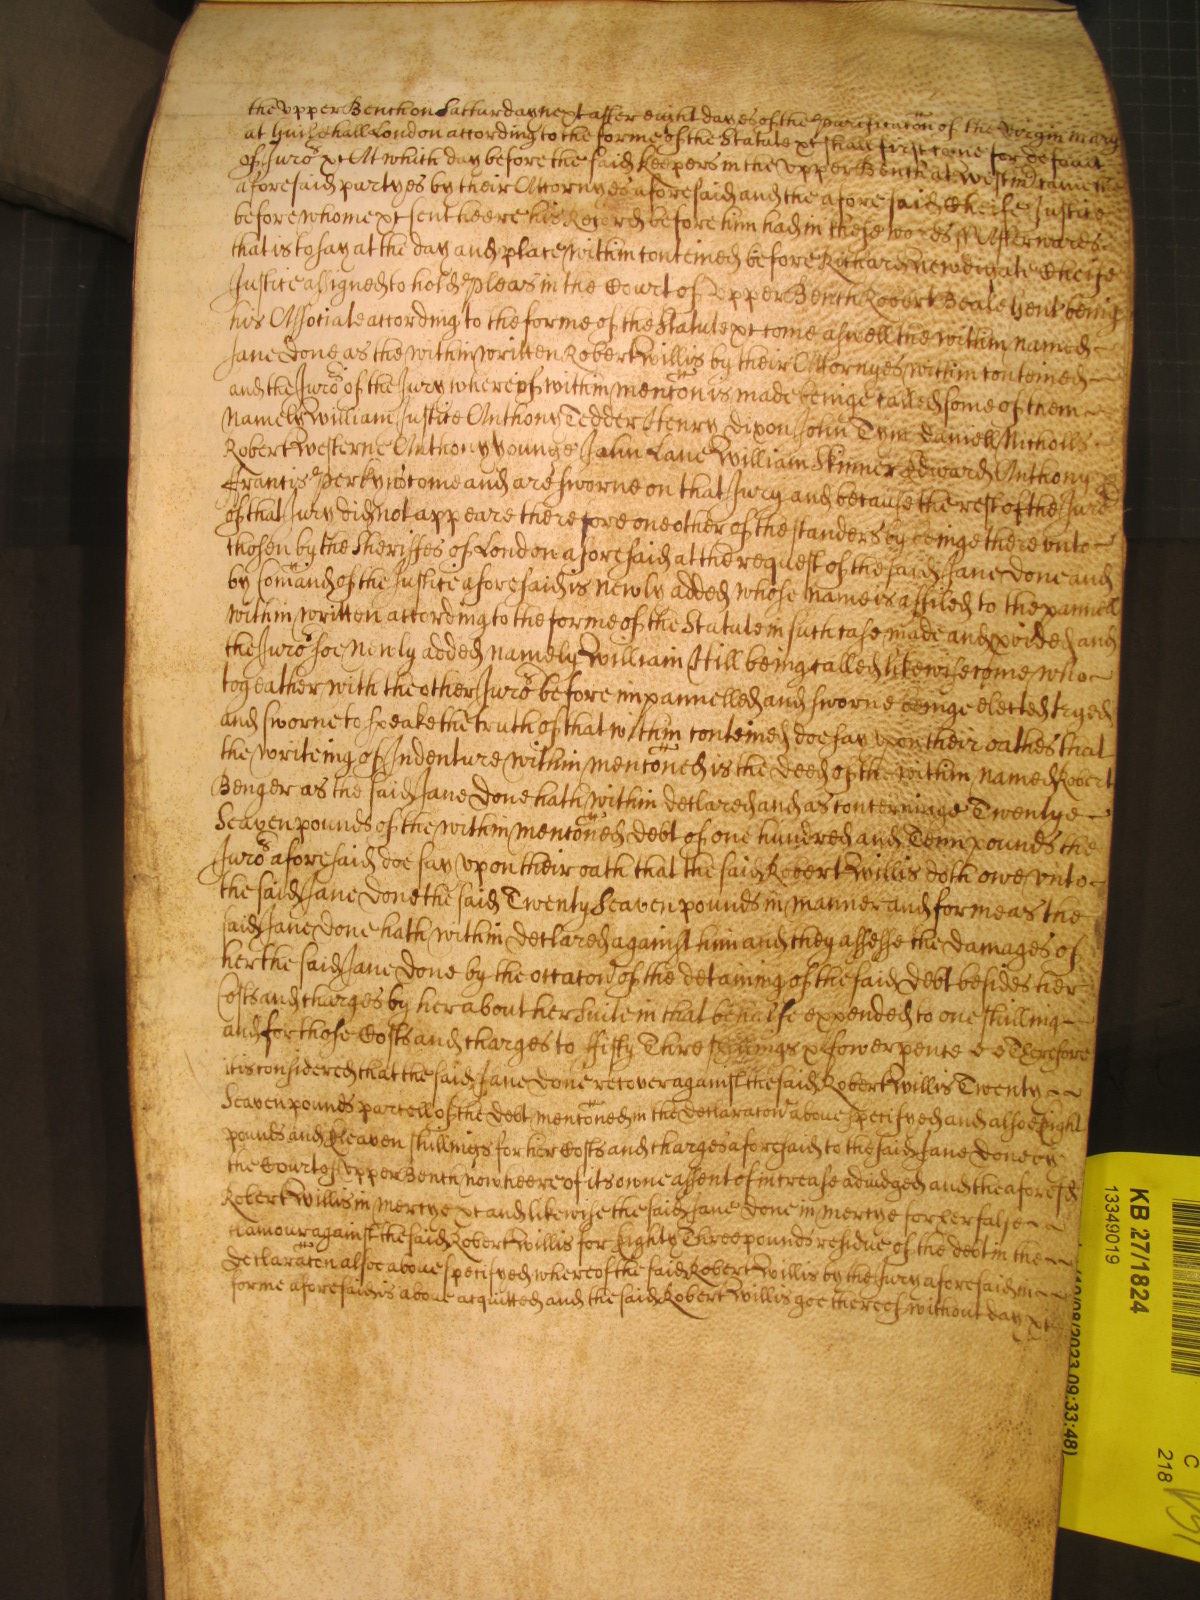 the vpper Bench on Satturday next after eight dayes of the Purificacon of the virgin Mary
at Guihehall London according to the forme of the Statute xt shall first come for default
of Juro xt At which day before the said Keepers in the vpper Bench at Westm came the
aforesaid partyes by their Attornyes aforesaid and the aforesaid Cheife Justice
before whome xt sent heere his Record before him had in these words Afterwards
that is to say at the day and place within conteined before Richard Newdigate Cheife
Justice assigned to hold Pleas in the Court of Vpper Bench Robert Beale Gent being
his Associate according to the forme of the Statute xt come aswell the within named
Jane Done as the within written Robert Willis by their Attornyes within conteined
and the Juro of the Jury whereof within mencon is made beinge called some of them
namely William Justice Anthony Tedder Henry Dixon John Tym Daniell Nicholls
Robert Westerne Anthony Younge John Lane William Skinner Edward Anthony
Francis Perkyns come and are sworne on that Jury and because the rest of the Juro
of that Jury did not appeare therefore one other of the standers by beinge there vnto
chosen by the Sheriffes of London aforesaid at the request of the said Jane Done and
by comand of the Justice aforesaid is newly added whose name is affiled to the pannell
within written according to the forme of the Statute in such case made and pvided and
the Juro soe newly added namely William Hill being called likewise come who
togeather with the other Juro before impannelled and sworne beinge elected tryed
and sworne to speake the truth of that within conteined doe say vpon their oathes that
the writeing of Indenture within menconed is the deed of the within named Robert
Benger as the said Jane Done hath within declared and as concerninge Twentye
Seaven pounds of the within menconed debt of one hundred and Tenn pounds the
Juro aforesaid doe say vpon their oath that the said Robert Willis doth owe vnto
the said Jane Done the said Twenty Seaven pounds in manner and forme as the
said Jane Done hath within declared against him and they assesse the damages of
her the said Jane Done by the occacon of the detaining of the said Debt besides her
Costs and charges by her about her Suite in that behalfe expended to one shilling
and for those Costs and charges to fifty Three shillings & fower pence Therefore
it is considered that the said Jane Done recover against the said Robert Willis Twenty
Seaven pounds parcell of the debt menconed in the declaracon above specifyed and alsoe Eight
pounds and Eleaven shillings for her Costs and charges aforesaid to the said Jane Done by
the Court of vpper Bench now heere of its owne assent of increase adiudged and the aforesd
Robert Willis in mercye xt and likewise the said Jane Done in mercye for her false
clamour against the said Robert Willis for Eighty Three pounds residue of the debt in the
Declaracon alsoe above specifyed whereof the said Robert Willis by the Jury aforesaid in
forme aforesaid is above acquitted and the said Robert Willis goe thereof without day xt
KB 27/1824
13349019
2023 09:33:48)
C
218